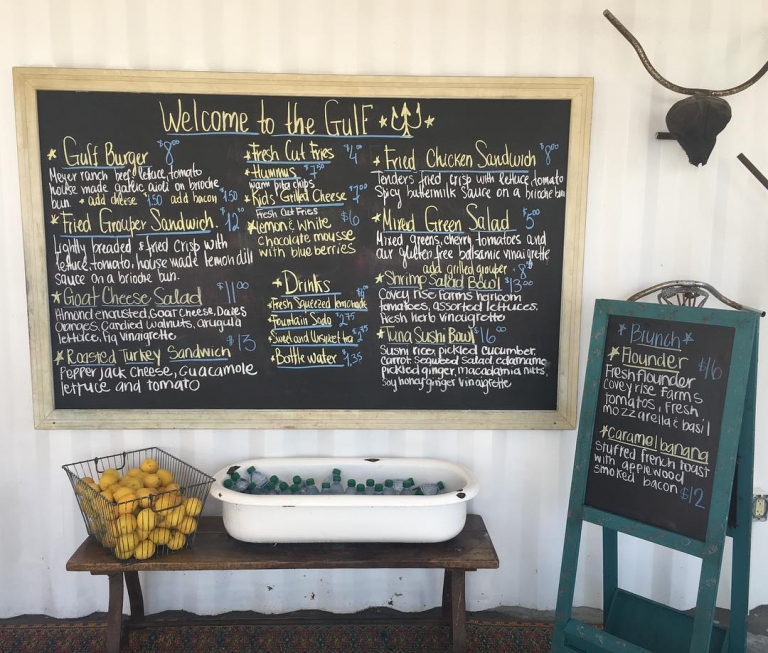 Welcome to the Gulf
* Gulf Burger $8⁰⁰
Meyer ranch beef, lettuce, tomato
house made garlic aioli on brioche
bun * add cheese $1.50 add bacon $1.50
* Fried Grouper Sandwich. $12⁰⁰
Lightly breaded & fried crisp with
lettuce, tomato, house made lemon dill
sauce on a brioche bun.
* Goat Cheese Salad $11⁰⁰
Almond encrusted Goat Cheese, Dates
Oranges, Candied walnuts, arugula
lettuce, Fig Vinaigrette
* Roasted Turkey Sandwich $13
Pepper jack cheese, Guacamole
lettuce and tomato
* Fresh Cut Fries $4
* Hummus $7⁵⁰
warm pita chips
* Kid's Grilled Cheese $7⁰⁰
Fresh Cut Fries
* lemon & white $6
chocolate mousse
with blueberries
* Drinks
* Fresh Squeezed lemonade
* Fountain Soda $2.75
* Sweet and Unsweet tea
* Bottle water $1.35
* Fried Chicken Sandwich $8⁰⁰
Tenders fried crisp with lettuce, tomato
Spicy buttermilk sauce on a brioche bun
* Mixed Green Salad $5⁰⁰
Mixed greens, cherry tomatoes and
our gluten free balsamic vinaigrette
add grilled grouper · 8⁰⁰
* Shrimp Salad Bowl $13⁰⁰
Covey rise Farms heirloom
tomatoes, assorted lettuces.
Fresh herb vinaigrette
* Tuna Sushi Bowl $16⁰⁰
Sushi rice, pickled cucumber,
carrot, Seaweed Salad, edamame,
pickled ginger, macadamia nuts,
Soy honey ginger Vinaigrette
* Brunch *
* Flounder $16
Fresh flounder
covey rise Farms
tomatos, Fresh
mozzarella & basil
* caramel banana
stuffed french toast
with applewood
smoked bacon $12